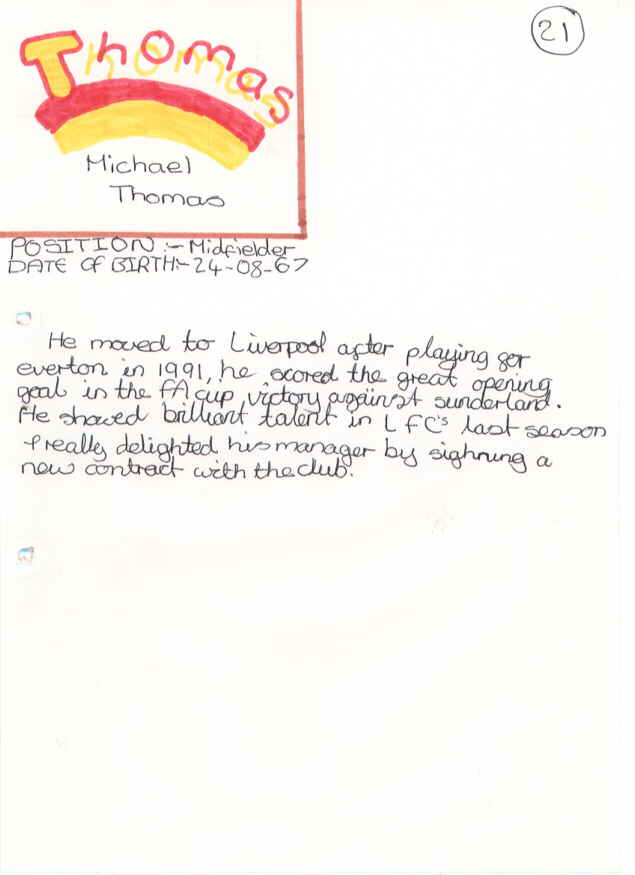 21
Thomas
Michael
Thomas
POSITION :- Midfielder
DATE Of BIRTH:- 24-08-67
He moved to Liverpool after playing for
everton in 1991, he scored the great opening
goal in the fA cup victory against sunderland.
He showed brilliant talent in L fC's last season
& really delighted his manager by sighning a
new contract with the club.